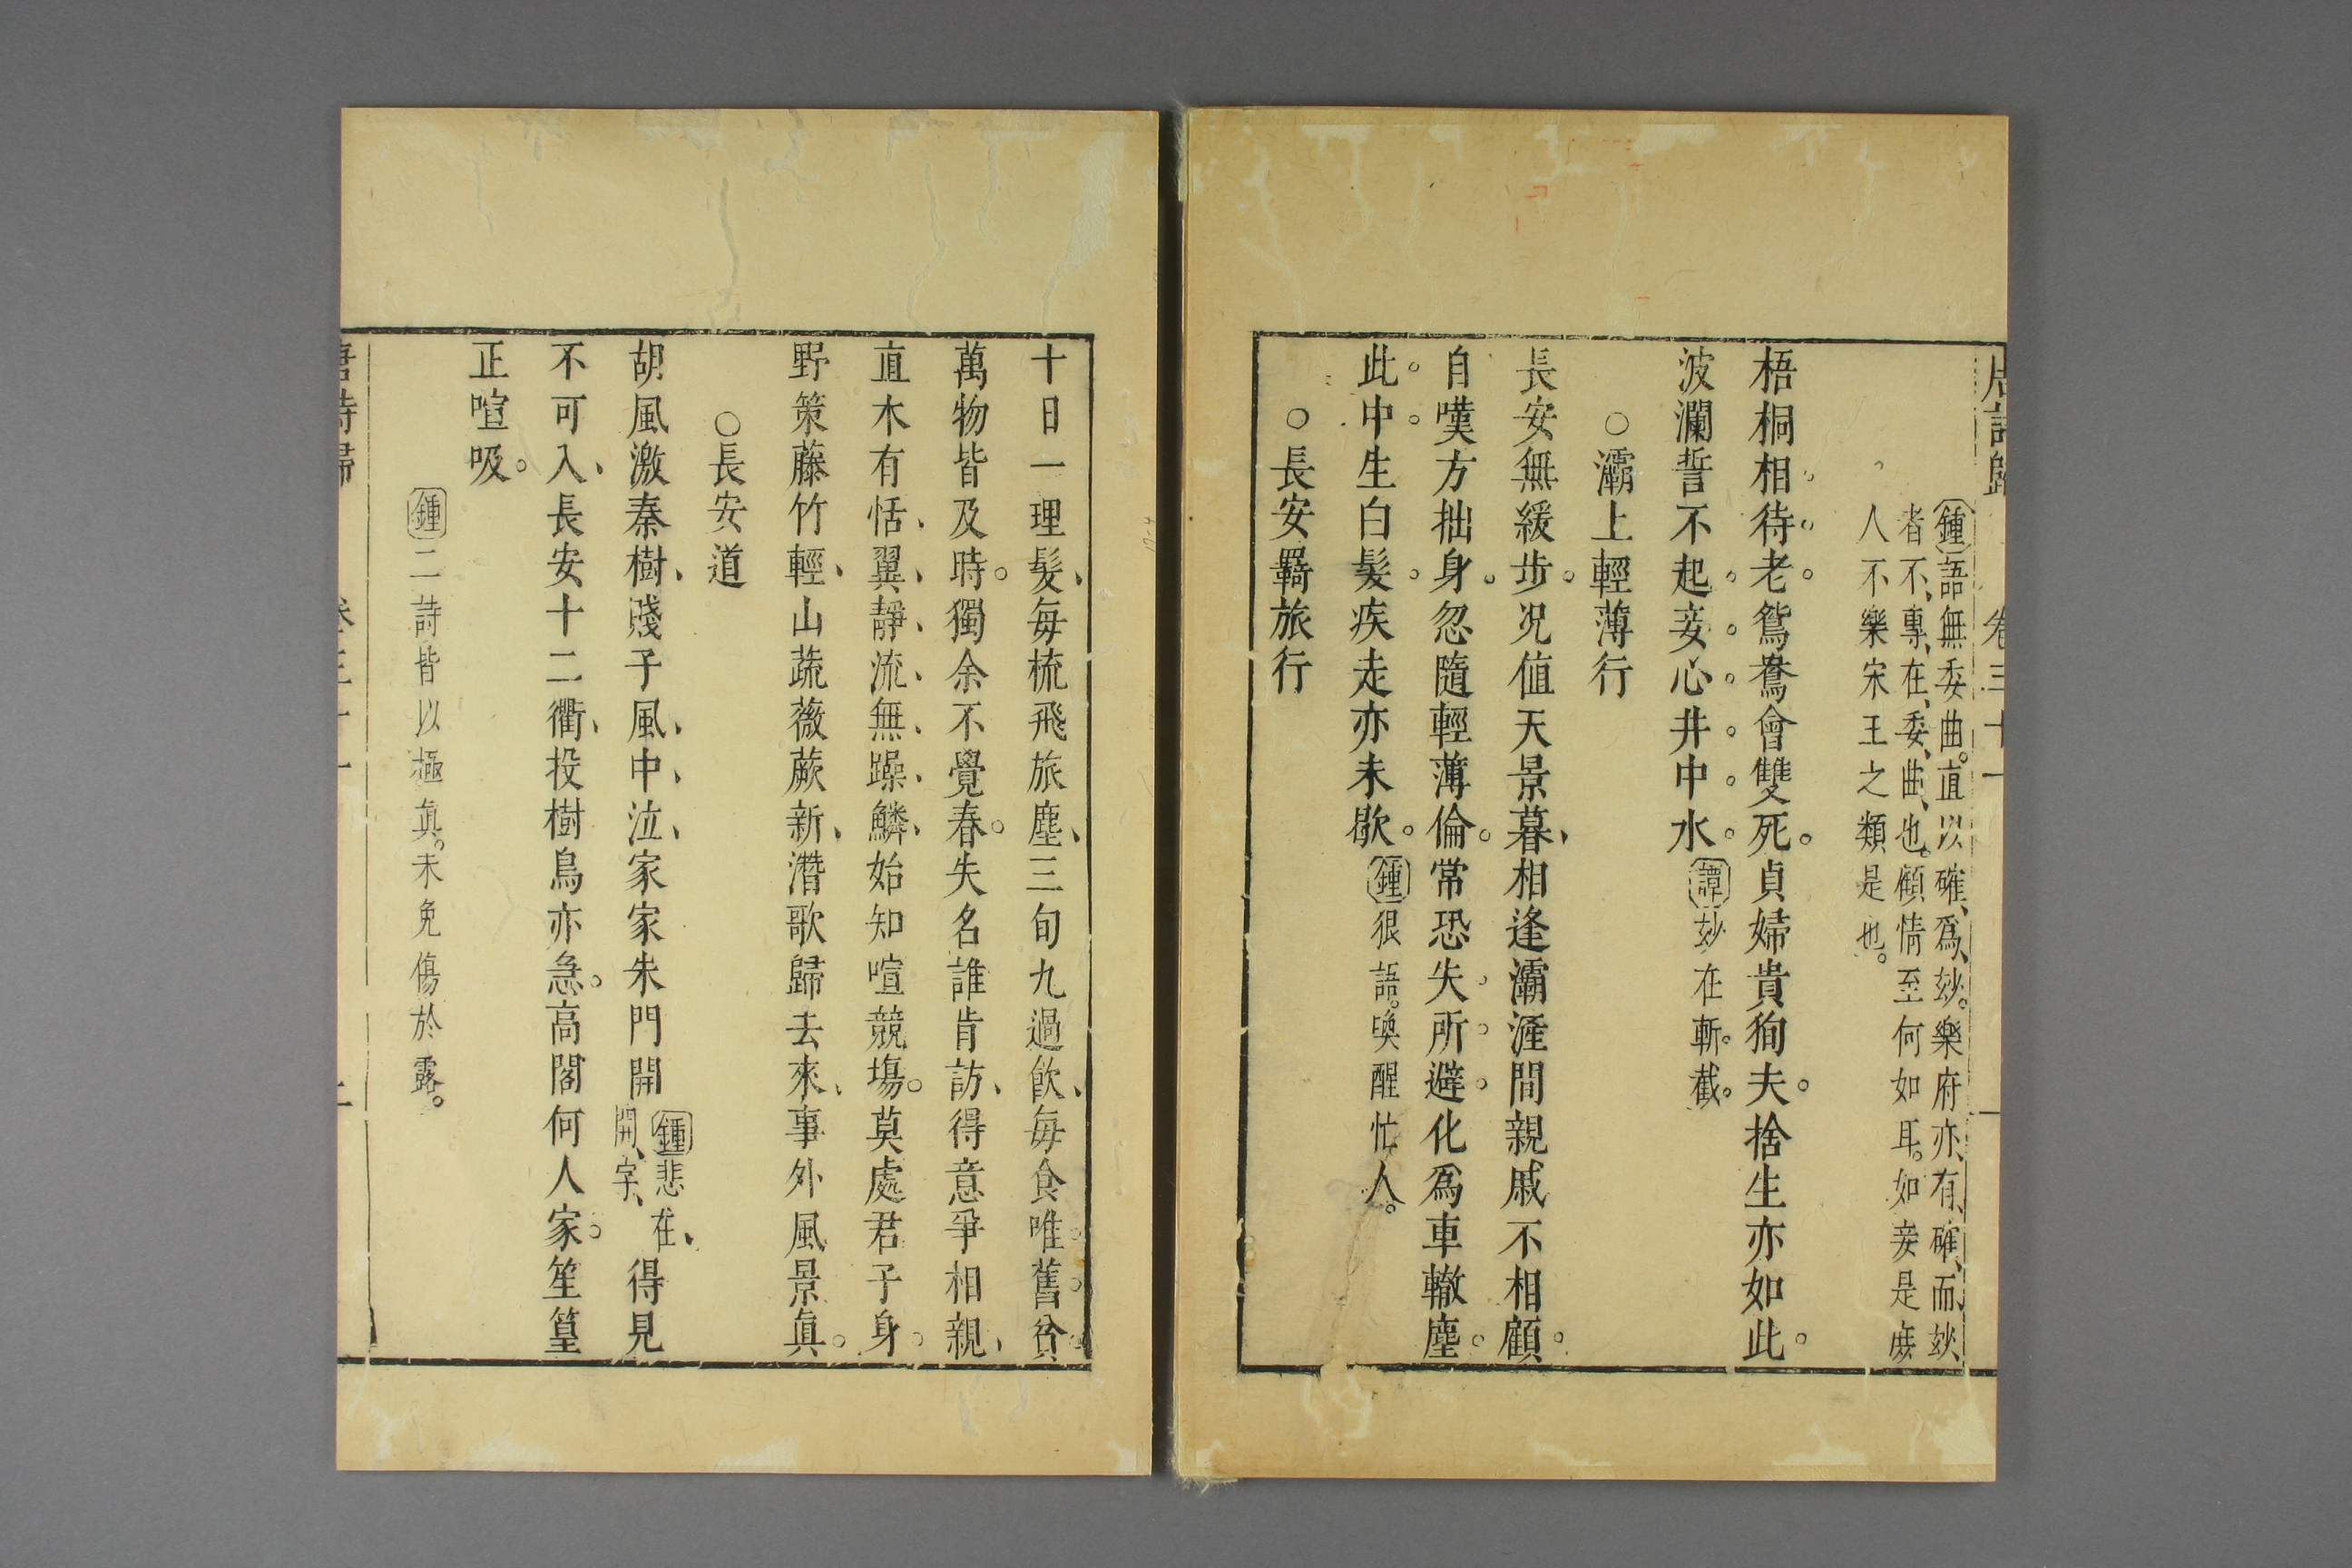 唐詩歸 卷三十一
鍾語無委曲。直以確、爲、妙。樂府亦、有、確、而、妙、
者不、專、在、委、曲、也。顧情至何如耳。如妾是庶
人不樂宋王之類是也。
梧桐相待老。鴛鴦會雙死。貞婦貴狥夫。捨生亦如此。
波瀾誓不起。妾心井中水。譚妙在斬截。
○灞上輕薄行
長安無緩步。况值天景暮、相逢灞滻間親戚不相顧。
自嘆方拙身。忽隨輕薄倫。常恐失所避。化爲車轍塵。
此中生白髮。疾走亦未歇。鍾狠語。喚醒忙人。
○長安羇旅行
十日一理髮、每梳飛旅塵、三旬九過飮、每食唯舊貧
萬物皆及時。獨余不覺春。失名誰肯訪、得意爭相親、
直木有恬翼、靜流無躁鱗、始知喧競塲。莫處君子身。
野策藤竹輕、山蔬薇蕨新、潛歌歸去來、事外風景眞。
○長安道
胡風激秦樹、賤子風、中、泣、家家朱門開鍾悲在、開、字、得見
不可入、長安十二衢、投樹鳥亦急。高閣何人家。笙篁
正喧吸。
鍾二詩皆以極眞。未免傷於露。
唐詩歸 卷三十一 二